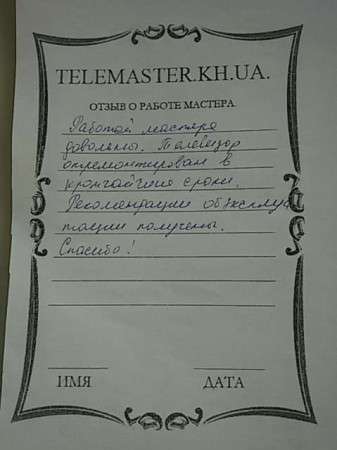 TELEMASTER.KH.UA.
ОТЗЫВ О РАБОТЕ МАСТЕРА
Работой мастера
довольны. Телевизор
отремонтирован в
кротчайшие сроки.
Рекомендации об эксплуа
тации получены.
Спасибо!
ИМЯ ДАТА